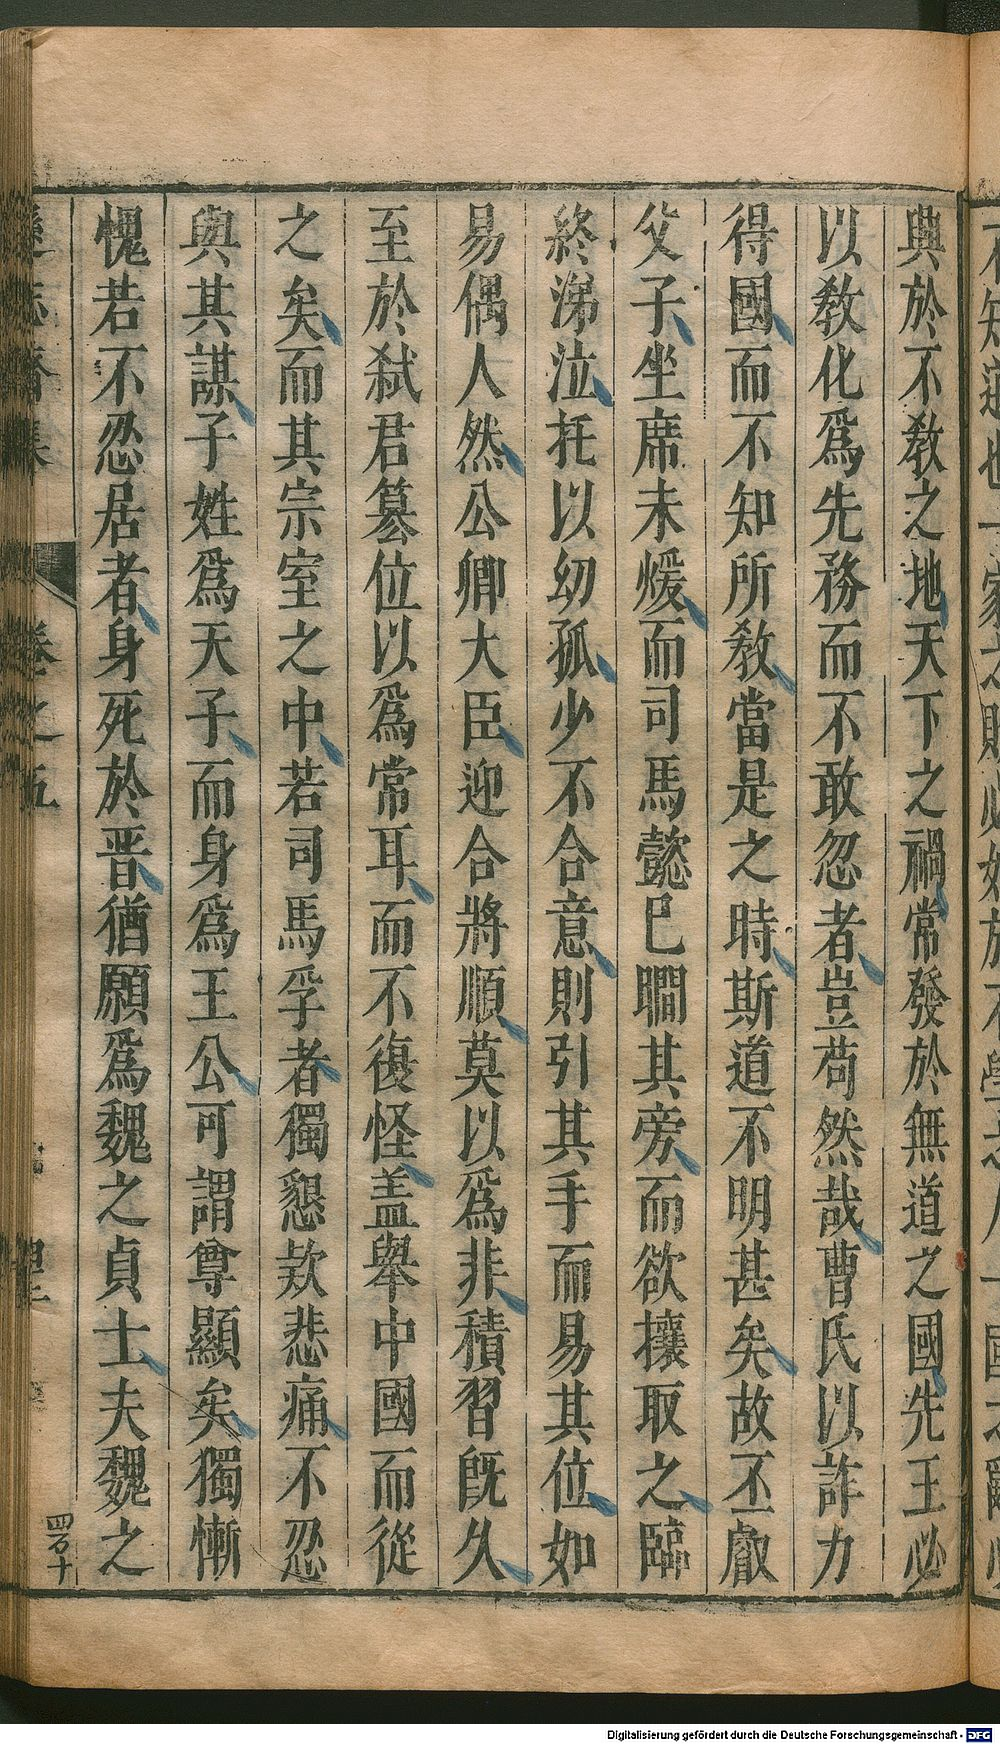 與於不教之地天下之禍常發於無道之國先王必
以教化爲先務而不敢忽者豈苟然哉曹氏以詐力
得國而不知所教當是之時斯道不明甚矣故丕叡
父子坐席未煖而司馬懿已瞷其旁而欲攘取之臨
終涕泣托以幼孤少不合意則引其手而易其位如
易偶人然公卿大臣迎合將順莫以爲非積習既久
至於弑君簒位以爲常耳而不復怪盖舉中國而從
之矣而其宗室之中若司馬孚者獨懇欵悲痛不忍
與其謀子姓爲天子而身爲王公可謂尊顯矣獨慚
愧若不忍居者身死於晋猶願爲魏之貞士夫魏之
遜志齋集 卷之五
四百十
Digitalisierung gefördert durch die Deutsche Forschungsgemeinschaft - DFG